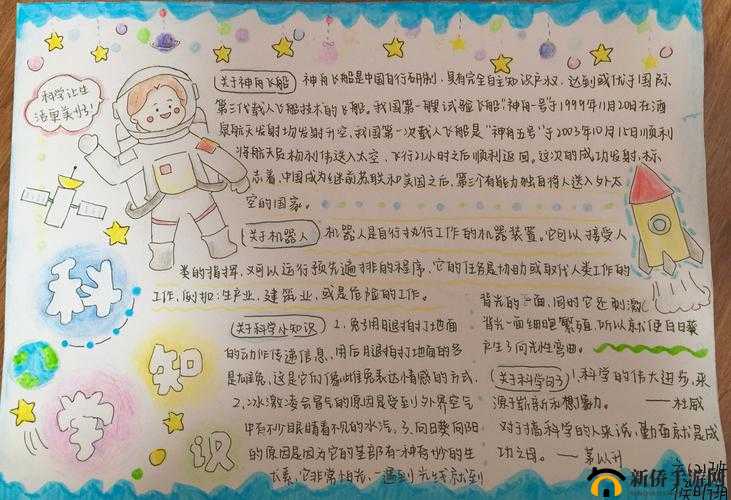 科学让生
活更美好!
关于神舟飞船 神舟飞船是中国自行研制,具有完全自主知识产权,达到或优于国际
第三代载人飞船技术的飞船。我国第一艘试验飞船"神舟一号"于1999年11月20在酒
泉航天发射场发射升空,我国第一次载人飞船是"神舟五号"于2003年10月15日顺利
将航天员杨利伟送入太空,飞行21小时之后顺利返回。这次的成功发射,标
志着,中国成为继前苏联和美国之后,第三个有能力独自将人送入外太
空的国家。
关于机器人 机器人是自行执行工作的机器装置。它可以接受人
类的指挥,又可以运行预先编排的程序,它的任务是协助或取代人类工作的
工作,例如:生产业,建筑业,或是危险的工作。
科学知识
关于科学小知识 1、兔子用后腿拍打地面
的动作传递信息,用后腿拍打地面的多
是雄兔,这是它们像雌兔表达情感的方式
2、冰激凌会冒气的原因是受到外界空气
中有不少眼睛看不见的水汽,3、向日葵向阳
的原因是因为它的茎部有一种奇妙的生
长素,它非常怕光,一遇到光线就到
背光的一面,同时它还刺激
背光一面细胞繁殖,所以就使向日葵
产生了向光性弯曲。
关于科学句子 1、科学的伟大进步,来
源于崭新和想象力。 ——杜威
对于搞科学的人来说,勤奋就是成
功之母。 —— 茅以升
新侨手游网